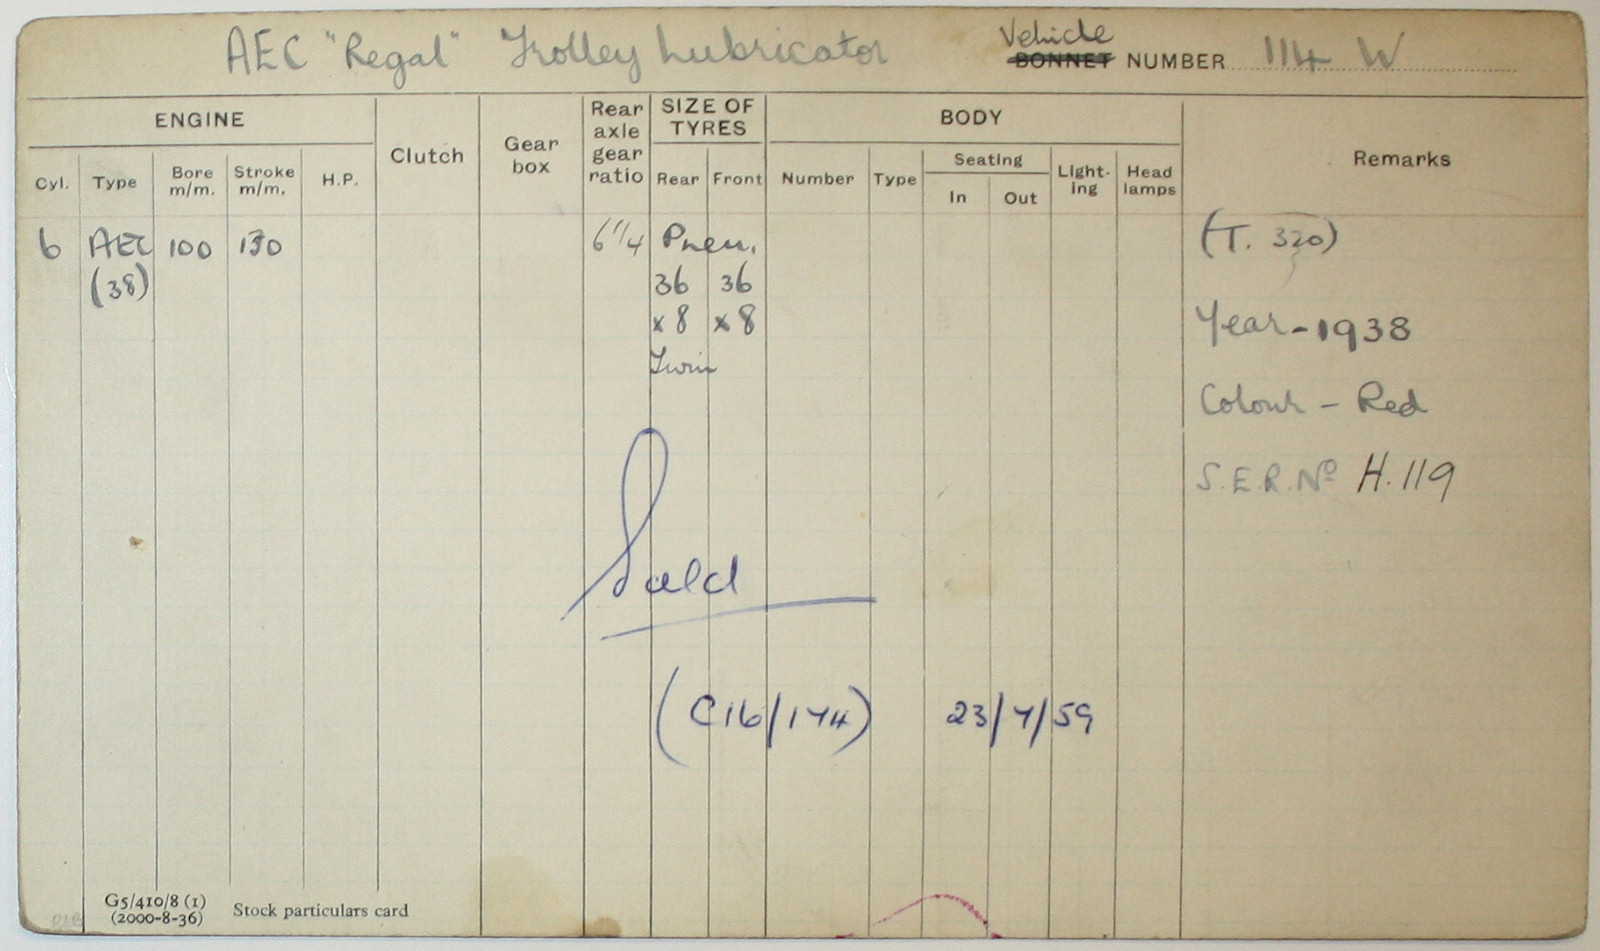 AEC "Regal" Trolley Lubricator
Vehicle
BONNET NUMBER 114 W
ENGINE
Clutch
Gear box
Rear axle gear ratio
SIZE OF TYRES
BODY
Remarks
Cyl. Type Bore m/m. Stroke m/m. H.P.
Rear Front
Number Type Seating In Out Light-ing Head lamps
6 AEC 100 130 6 1/4 Pneu. (T. 320)
(38) 36 36
x 8 x 8 Year - 1938
Twin
Colour - Red
S.E.R. No H.119
Sold
(C16/174) 23/7/59
G5/410/8 (1)
(2000-8-36) Stock particulars card